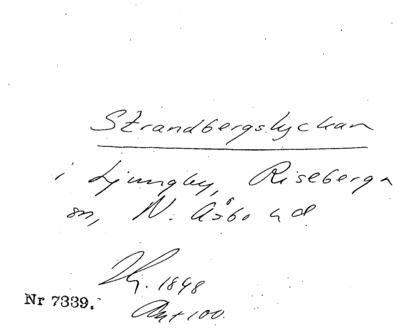 Strandbergslyckan
i Ljungby, Riseberga
sn, N. Åsbo hd
Hg. 1898
Nr 7339.
Ant 100.